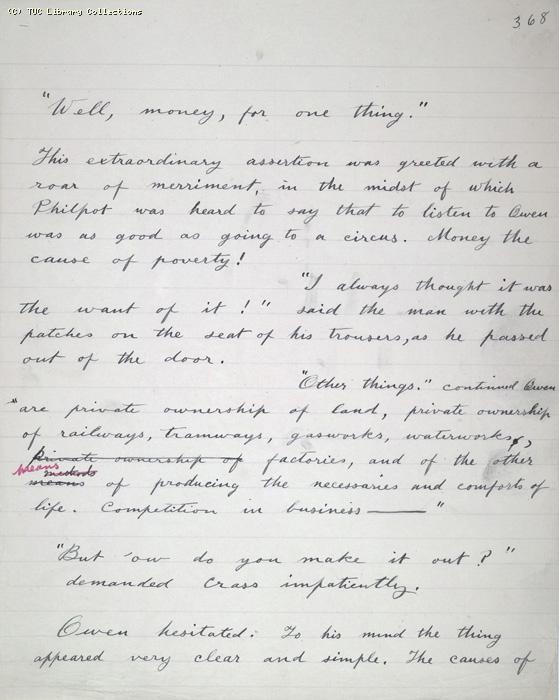 (C) TUC Library Collections
368
"Well, money, for one thing."
This extraordinary assertion was greeted with a
roar of merriment, in the midst of which
Philpot was heard to say that to listen to Owen
was as good as going to a circus. Money the
cause of poverty!
"I always thought it was
the want of it!" said the man with the
patches on the seat of his trousers, as he passed
out of the door.
"Other things." continued Owen
"are private ownership of land, private ownership
of railways, tramways, gasworks, waterworks,
private ownership of factories, and of the other
means methods
means of producing the necessaries and comforts of
life. Competition in business —— "
"But 'ow do you make it out?"
demanded Crass impatiently.
Owen hesitated. To his mind the thing
appeared very clear and simple. The causes of